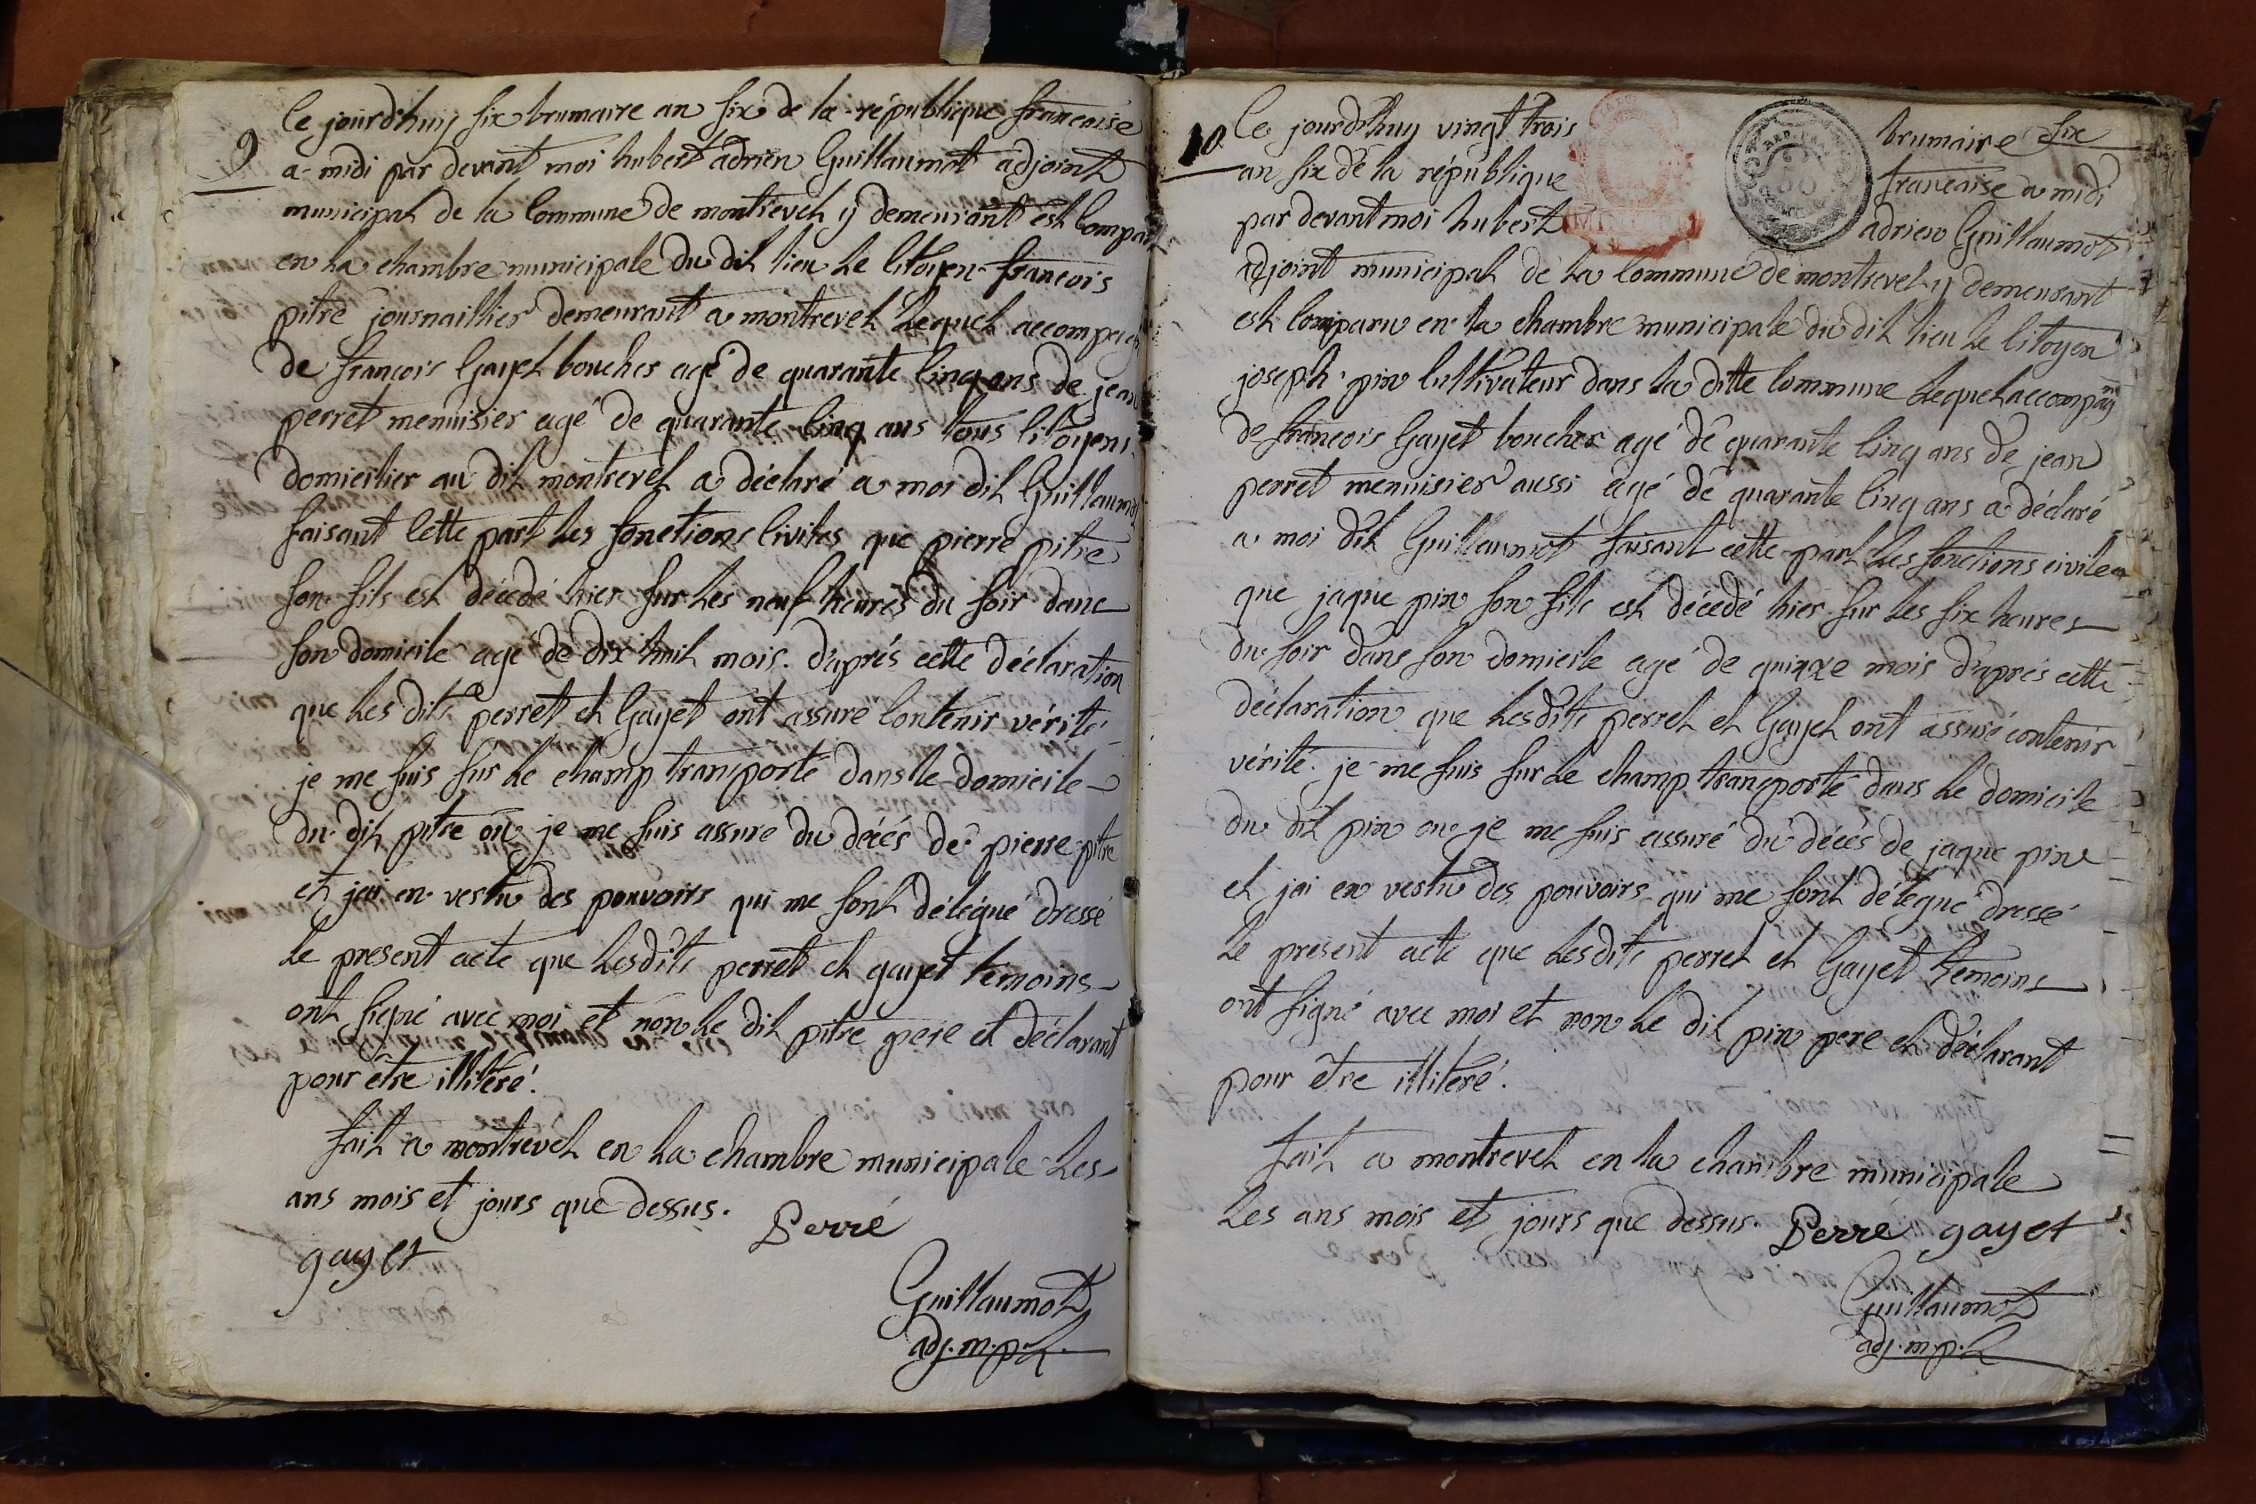 9
Ce jourd'huy six brumaire an six de la république francaise
a midi par devant moi hubert adrien Guillaumot adjoint
municipal de la Commune de montrevel y demeurant est Compar
en la chambre municipale du dit lieu le Citoyen francois
pitre journaillier demeurant a montrevel Lequel accompagn
de françois Gayet boucher agé de quarante Cinq ans de jean
perret menuisier agé de quarante Cinq ans tous Citoyens
domicilier au dit montrevel a déclaré a moi dit Guillaumo
faisant Cette part les fonctions Civiles que pierre pitre
son fils est décédé hier sur les neuf heures du soir dans
son domicile agé de dix huit mois. d'après cette déclaration
que les dits perret et Gayet ont assuré Contenir vérité
je me suis sur le champ transporté dans le domicile
du dit pitre où je me suis assuré du décés de pierre pitre
et jai en vertu des pouvoirs qui me sont délégué dressé
le present acte que lesdits perret et gayet témoins
ont signé avec moi et non le dit pitre pere et déclarant
pour être illitéré.
fait a montrevel en la chambre municipale les
ans mois et jours que dessus. Perré
gayet
Guillaumot
adj. m. p. l.
10. Ce jourd'huy vingt trois brumaire six
an six de la république francaise a midi
par devant moi hubert adrien Guillaumot
adjoint municipal de la Commune de montrevel y demeurant
est Comparu en la chambre municipale du dit lieu le Citoyen
joseph pin Cultivateur dans la ditte Commune Lequel accompagné
de francois Gayet boucher agé de quarante Cinq ans de jean
perret menuisier aussi agé de quarante Cinq ans a déclaré
a moi dit Guillaumot faisant cette part les fonctions civiles
que jaque pin son fils est décédé hier sur les six heures
du soir dans son domicile agé de quinze mois d'après cette
déclaration que lesdits perret et Gayet ont assuré contenir
vérité. je me suis sur le champ transporté dans le domicile
du dit pin ou je me suis assuré du décès de jaque pin
et jai en vertu des pouvoirs qui me sont délégué dressé
le present acte que lesdits perret et Gayet témoins
ont signé avec moi et non le dit pin pere et déclarant
pour etre illitéré.
fait a montrevel en la chambre municipale
les ans mois et jours que dessus. Perré gayet
Guillaumot
adj. m. p. l